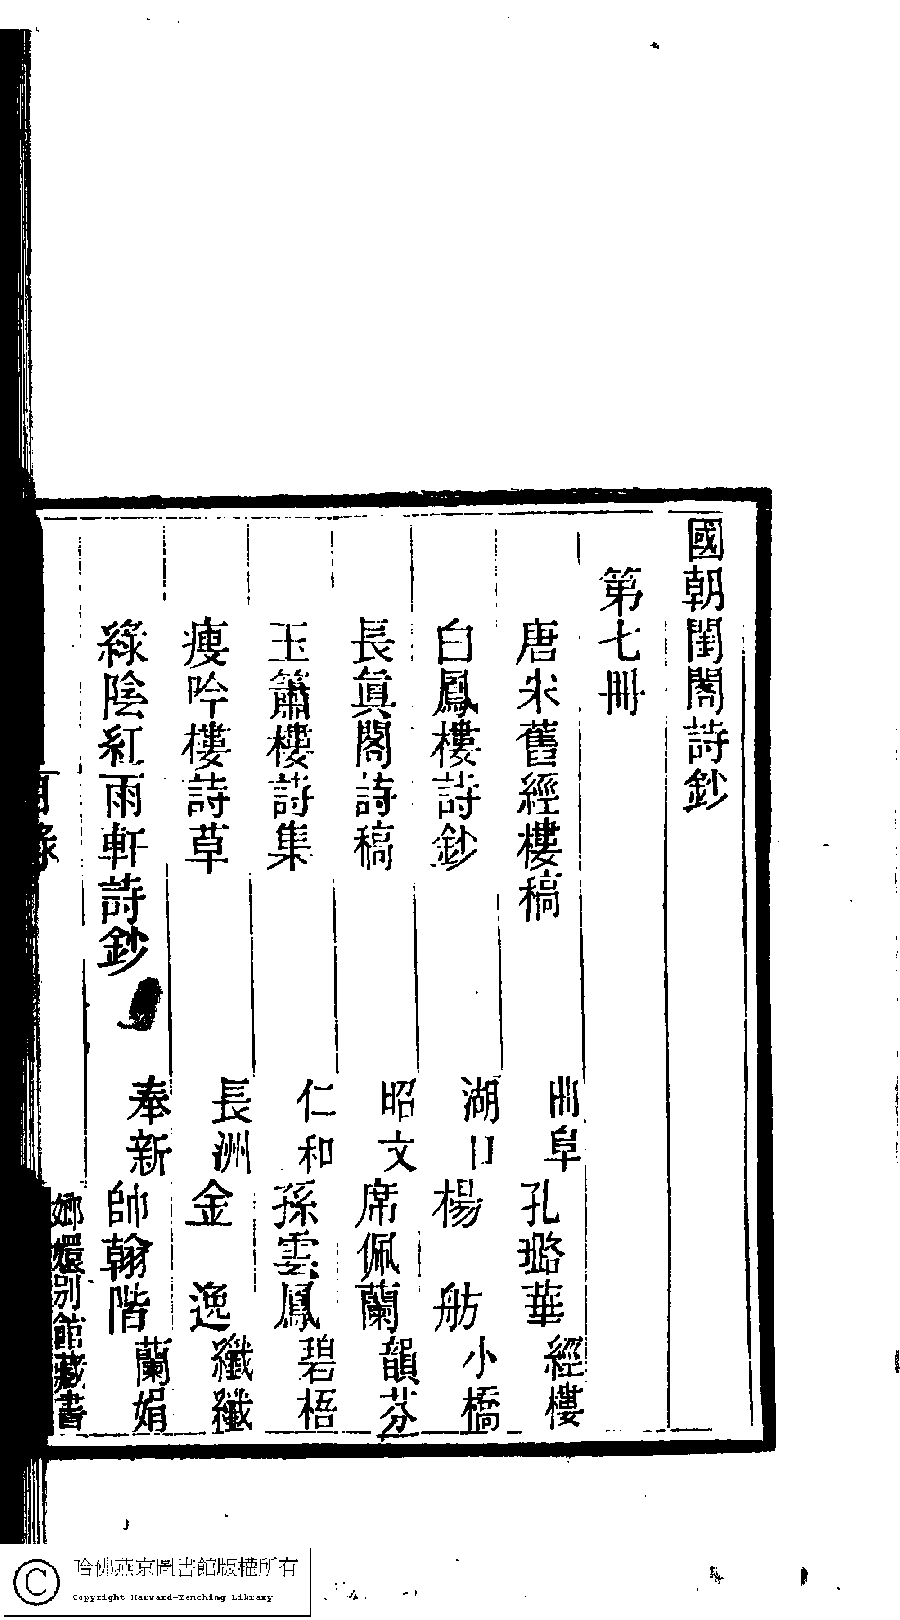 國朝閨閣詩鈔
第七冊
唐宋舊經樓稿　曲阜　孔璐華　經樓
白鳳樓詩鈔　湖口　楊　舫　小橋
長眞閣詩稿　昭文　席佩蘭　韻芬
玉簫樓詩集　仁和　孫雲鳳　碧梧
瘦吟樓詩草　長洲　金　逸　纖纖
綠陰紅雨軒詩鈔　奉新　帥翰階　蘭娟
目錄　嫏嬛別館藏書
哈佛燕京圖書館版權所有
Copyright Harvard-Yenching Library